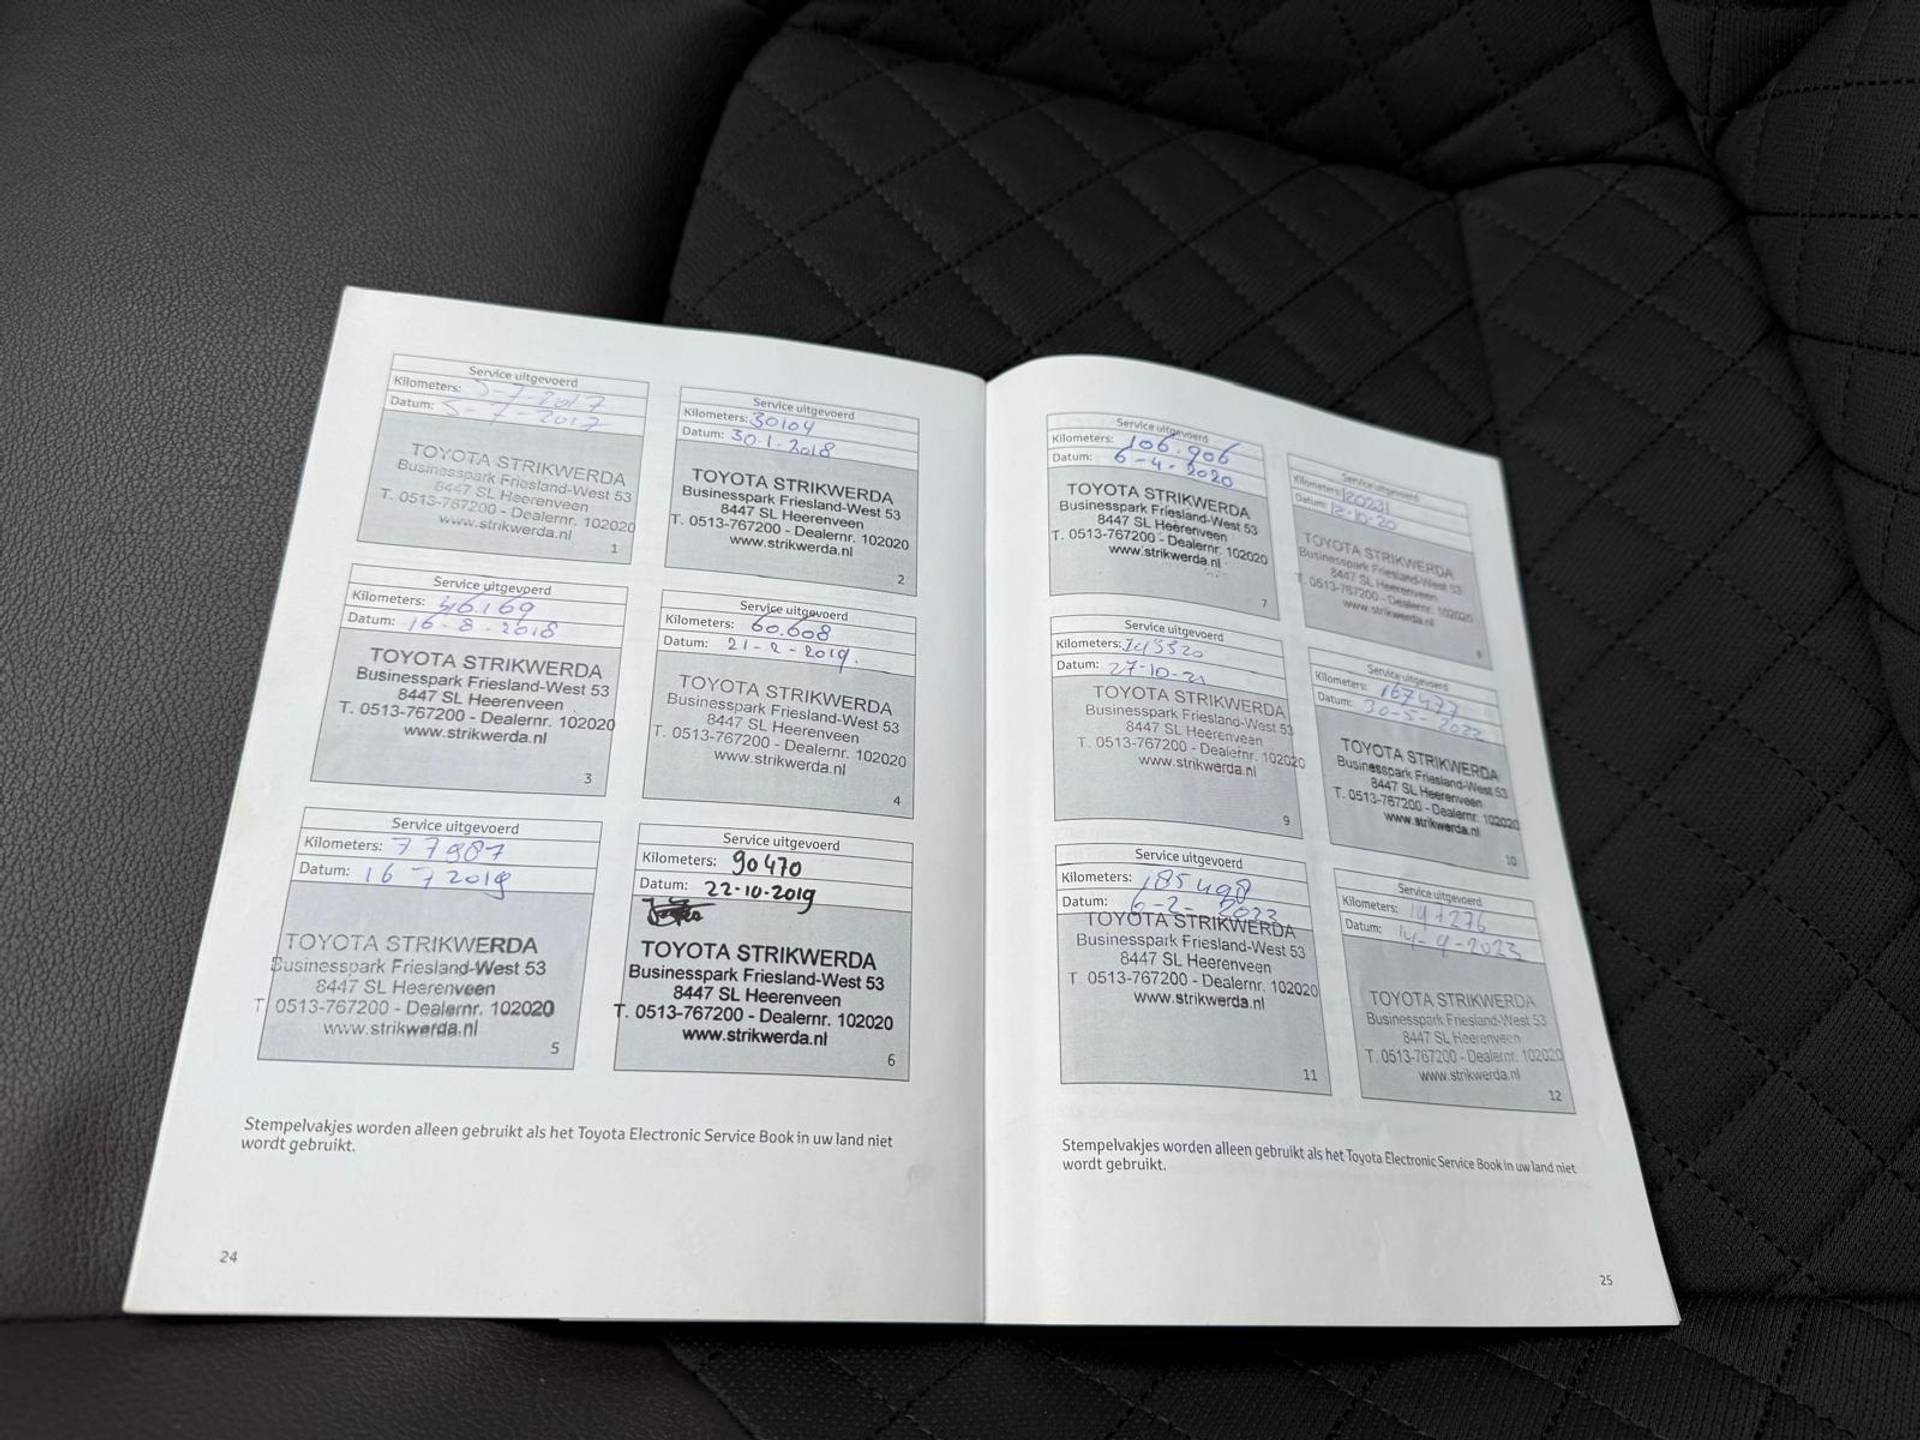 Service uitgevoerd
Kilometers: 5-7-2017
Datum: 5-7-2017
TOYOTA STRIKWERDA
Businesspark Friesland-West 53
8447 SL Heerenveen
T. 0513-767200 - Dealernr. 102020
www.strikwerda.nl
1
Service uitgevoerd
Kilometers: 30104
Datum: 30-1-2018
TOYOTA STRIKWERDA
Businesspark Friesland-West 53
8447 SL Heerenveen
T. 0513-767200 - Dealernr. 102020
www.strikwerda.nl
2
Service uitgevoerd
Kilometers: 46.169
Datum: 16-8-2018
TOYOTA STRIKWERDA
Businesspark Friesland-West 53
8447 SL Heerenveen
T. 0513-767200 - Dealernr. 102020
www.strikwerda.nl
3
Service uitgevoerd
Kilometers: 60.608
Datum: 21-2-2019.
TOYOTA STRIKWERDA
Businesspark Friesland-West 53
8447 SL Heerenveen
T. 0513-767200 - Dealernr. 102020
www.strikwerda.nl
4
Service uitgevoerd
Kilometers: 77987
Datum: 16 7 2019
TOYOTA STRIKWERDA
Businesspark Friesland-West 53
8447 SL Heerenveen
T 0513-767200 - Dealernr. 102020
www.strikwerda.nl
5
Service uitgevoerd
Kilometers: 90470
Datum: 22-10-2019
TOYOTA STRIKWERDA
Businesspark Friesland-West 53
8447 SL Heerenveen
T. 0513-767200 - Dealernr. 102020
www.strikwerda.nl
6
Stempelvakjes worden alleen gebruikt als het Toyota Electronic Service Book in uw land niet
wordt gebruikt.
24
Service uitgevoerd
Kilometers: 106.906
Datum: 6-4-2020
TOYOTA STRIKWERDA
Businesspark Friesland-West 53
8447 SL Heerenveen
T. 0513-767200 - Dealernr. 102020
www.strikwerda.nl
7
Service uitgevoerd
Kilometers: 120231
Datum: 12-10-20
TOYOTA STRIKWERDA
Businesspark Friesland-West 53
8447 SL Heerenveen
T. 0513-767200 - Dealernr. 102020
www.strikwerda.nl
8
Service uitgevoerd
Kilometers:
Datum: 27-10-21
TOYOTA STRIKWERDA
Businesspark Friesland-West 53
8447 SL Heerenveen
T. 0513-767200 - Dealernr. 102020
www.strikwerda.nl
9
Service uitgevoerd
Kilometers: 167477
Datum: 30-5-2022
TOYOTA STRIKWERDA
Businesspark Friesland-West 53
8447 SL Heerenveen
T. 0513-767200 - Dealernr. 102020
www.strikwerda.nl
10
Service uitgevoerd
Kilometers: 185498
Datum: 6-2-2023
TOYOTA STRIKWERDA
Businesspark Friesland-West 53
8447 SL Heerenveen
T 0513-767200 - Dealernr. 102020
www.strikwerda.nl
11
Service uitgevoerd
Kilometers:
Datum: 14-9-2023
TOYOTA STRIKWERDA
Businesspark Friesland-West 53
8447 SL Heerenveen
T. 0513-767200 - Dealernr. 102020
www.strikwerda.nl
12
Stempelvakjes worden alleen gebruikt als het Toyota Electronic Service Book in uw land niet
wordt gebruikt.
25